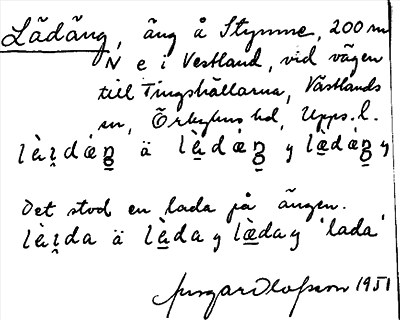 Lãdãng, ãng å Stymne, 200 m
N e i Vestland, vid vägen
till Tingshällarna, Västlands
sn, Örbyhus hd, Upps. l.
làɩ̯dáŋ̲ ä là̲dáŋ̲ y læ̲̀dáŋ̲ y
Det stod en lada på ängen.
làɩ̯da ä là̲da y læ̲̀da y 'lada'
Olofsson 1951